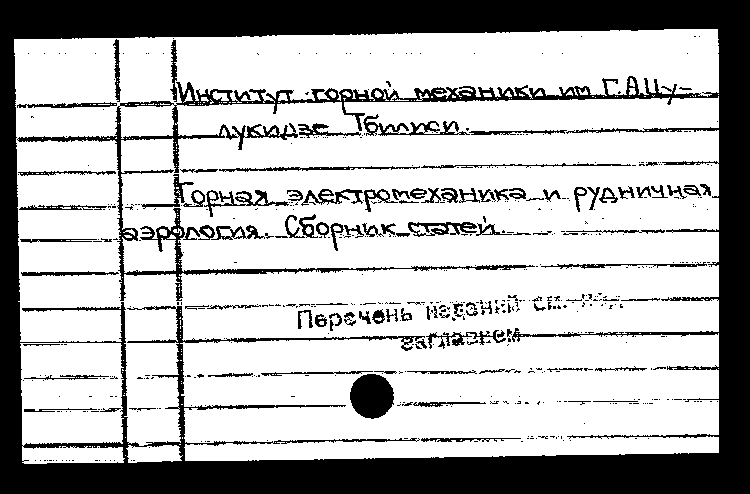 Институт горной механики им Г.А.Цу-
лукидзе Тбилиси.
Горная электромеханика и рудничная
аэрология. Сборник статей.
Перечень изданий см. под
заглавием